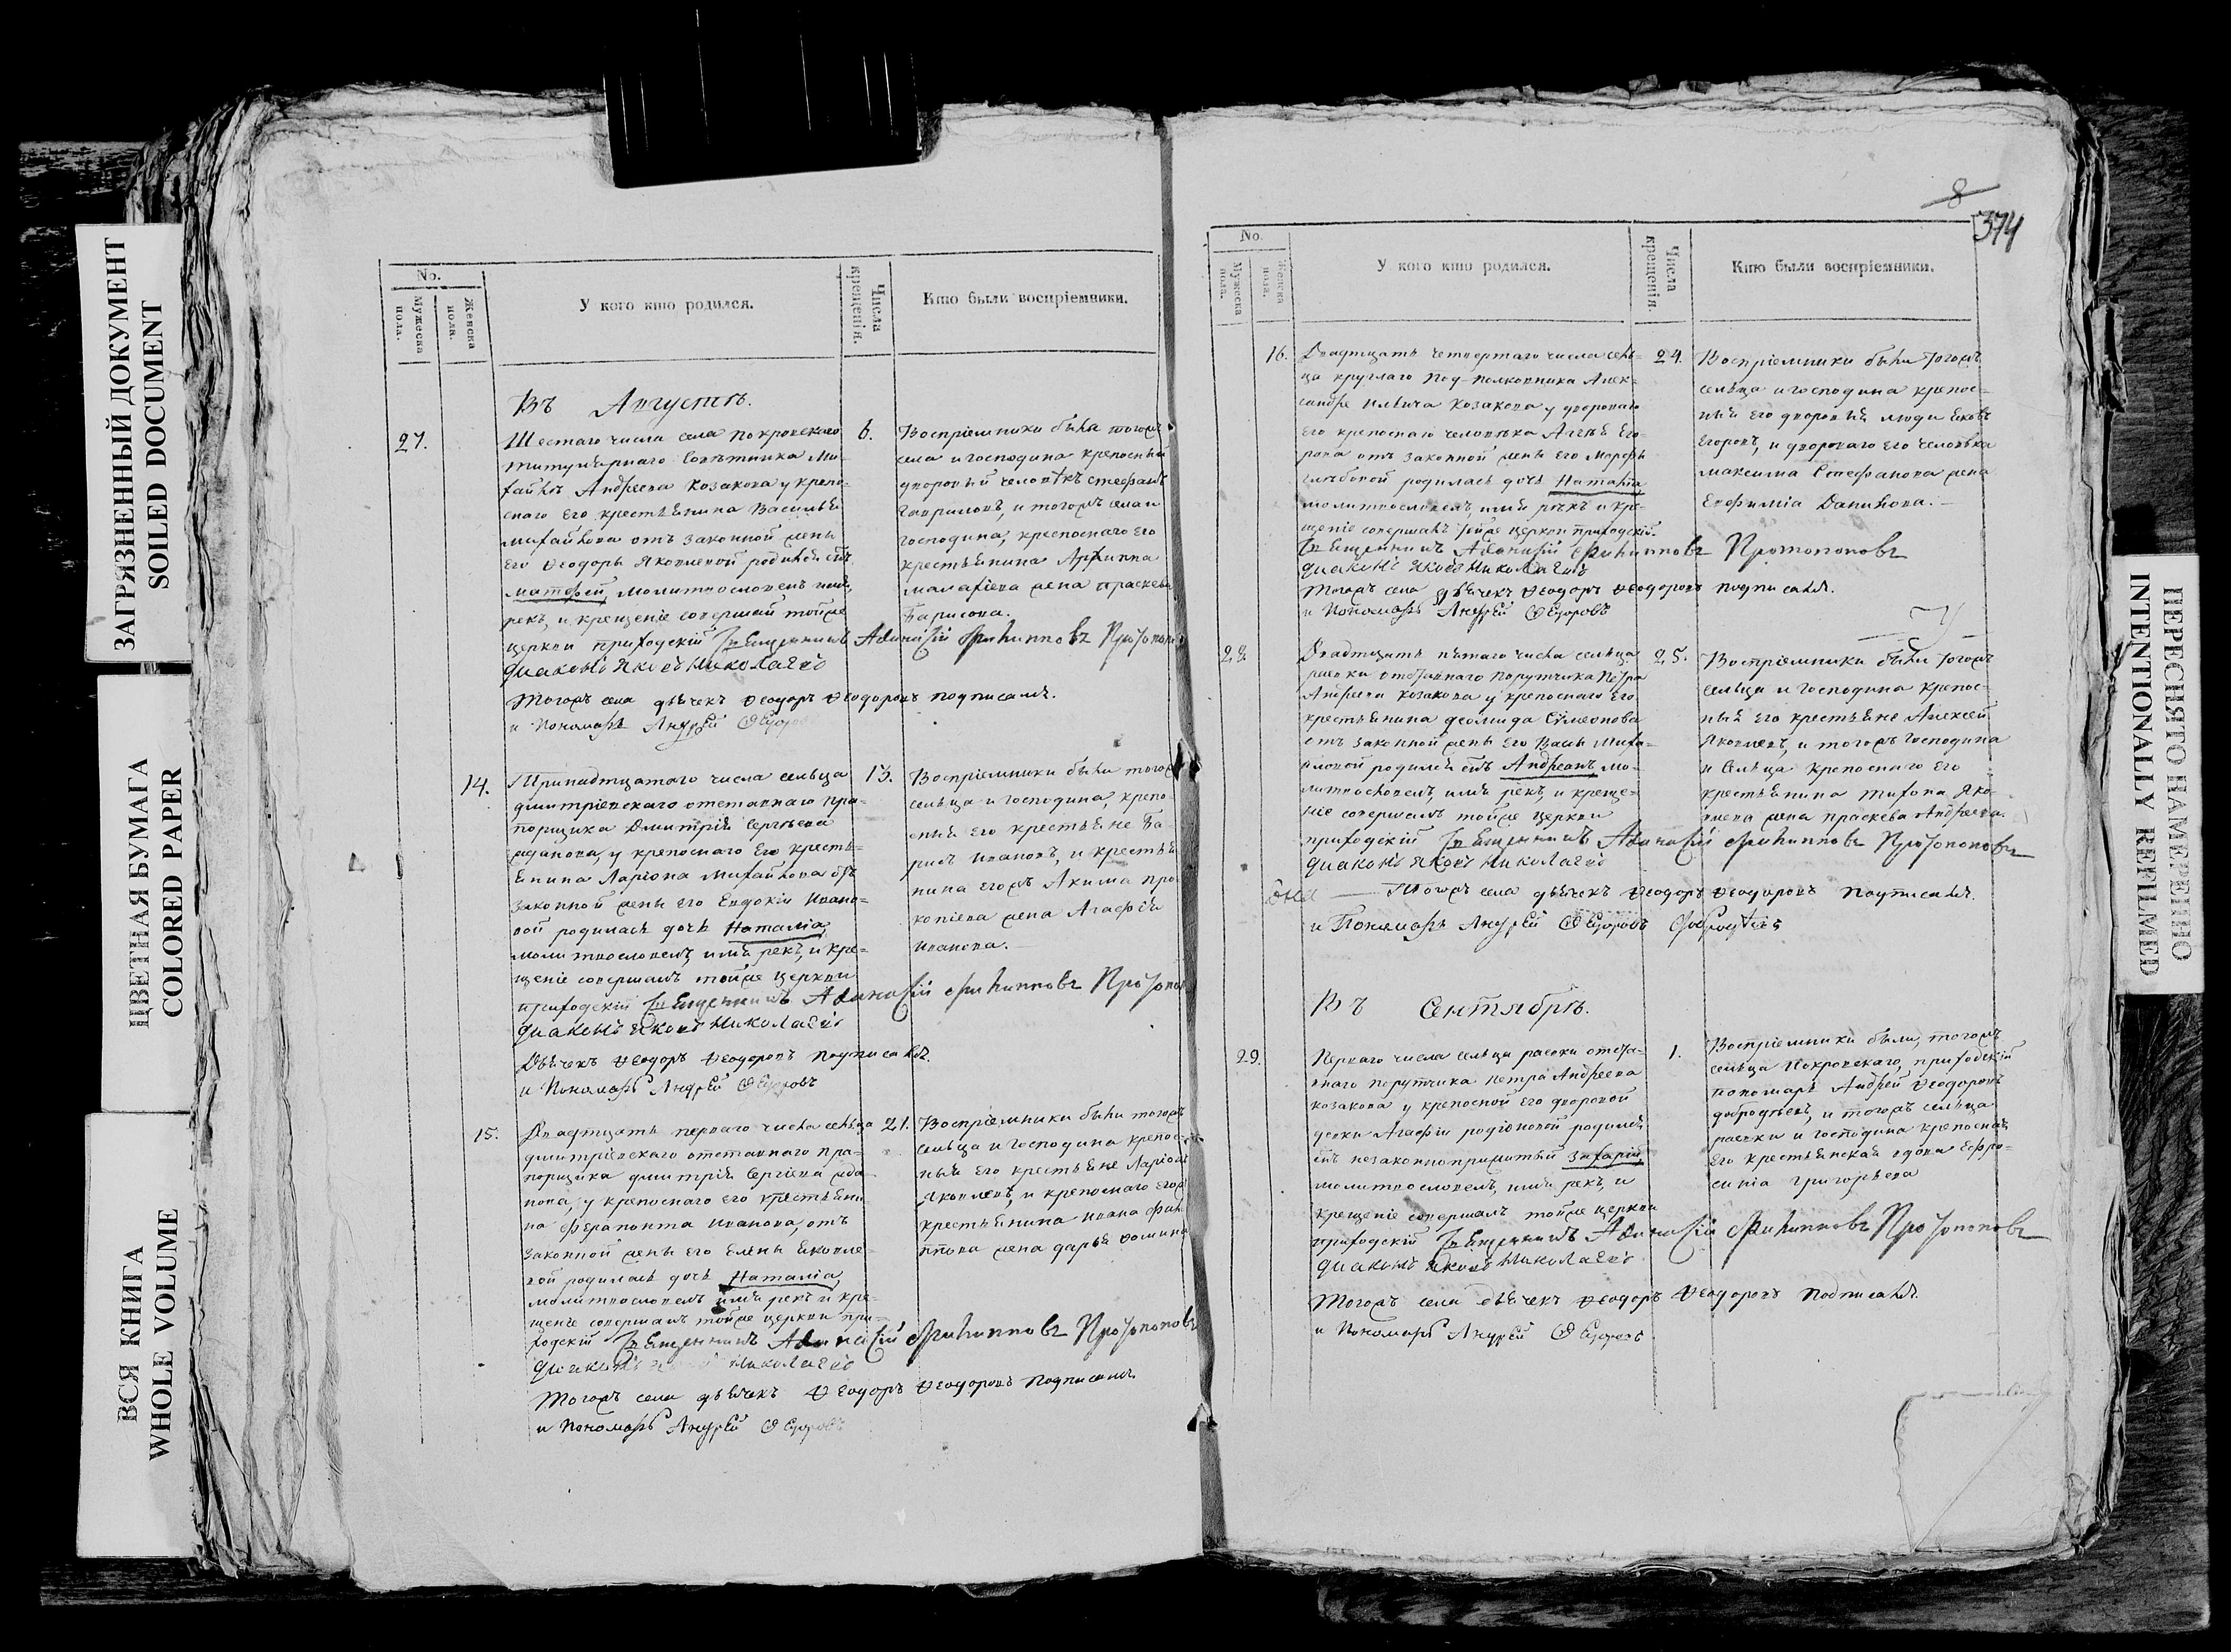 ЗАГРЯЗНЕННЫЙ ДОКУМЕНТ
SOILED DOCUMENT
ЦВЕТНАЯ БУМАГА
COLORED PAPER
ВСЯ КНИГА
WHOLE VOLUME
No.
Мужеска пола.
Женска пола.
У кого кто родился.
Числа крещенія.
Кто были воспріемники.
Въ Августѣ.
27.
Шестаго числа села покровскаго
титулярнаго Совѣтника Ми-
хайлы Андреева Козакова у крепо-
снаго Его крестьянина Василья
михайлова отъ законной жены
Его Ѳеодоры Яковлевой родился сынъ
матфей, молитвословилъ имя
рекъ, и крещеніе совершалъ тойже
церкви приходскій Священникъ Афанасій Филипповъ Протопопо
Диаконъ Яковъ Николаевъ
тогожъ села дьячекъ Ѳеодоръ Ѳеодоровъ подписалъ.
и Пономарь Андрей Ѳедоровъ
6.
Воспріемники были тогожъ
села и господина крепосный
дворовый человѣкъ стефанъ
Гавриловъ, и тогожъ села и
господина, крепоснаго Его
крестьянина Архиппа
малафіева жена праскевья
Барисова.
14.
Принадтцатаго числа сельца
дмитріевскаго отставнаго пра-
порщика Дмитрія Сергѣева
жданова, у крепоснаго Его кресть-
янина Ларіона Михайлова отъ
законной жены его Евдокіи Ивано-
вой родилась дочь Наталія,
молитвословилъ, имя рекъ, и кре-
щеніе совершалъ тойже церкви
приходскій Священникъ Афанасій Филипповъ Протопоп
Диаконъ Яковъ Николаевъ
Дьячекъ Ѳеодоръ Ѳеодоровъ подписалъ.
и Пономарь Андрей Ѳедоровъ
13.
Воспріемники были тогожъ
сельца и господина, крепо-
сныя его крестьяне Ва-
рисъ ивановъ, и крестья
нина егожъ Акима про
копіева жена Агафія
иванова.
15.
Двадтцать перваго числа сельца
дмитріевскаго отставнаго пра-
порщика дмитрія Сергіева жда-
нова, у крепоснаго его крестьяни-
на ферапонта иванова, отъ
законной жены его Елены яковле-
вой родилась дочь Наталія,
молитвословилъ имя рекъ и кре-
щеніе совершалъ тойже церкви при-
ходскій Священникъ Афанасій Филипповъ Протопоповъ
Диаконъ Николаевъ
тогожъ села дьячекъ Ѳеодоръ Ѳеодоровъ подписалъ.
и Пономарь Андрей Ѳедоровъ
21.
Воспріемники были тогожъ
сельца и господина крепос-
ныя его крестьяне Ларіонъ
Яковлевъ, и крепоснаго его
крестьянина ивана фили
ппова жена дарья фомина
8
374
No.
Мужеска пола.
Женска пола.
У кого кто родился.
Числа крещенія.
Кто были воспріемники.
16.
Двадтцать четвертаго числа сель-
ца круглаго Под-полковника Алек-
сандре Ильича Козакова у двороваго
его крепоснаго человѣка Агѣя Его-
рова отъ законной жены его Марфы
Глѣбовой родилась дочь Наталія
молитвословилъ имя рекъ и кре-
щеніе совершалъ тойже церкви приходскій
Священникъ Афанасій Филипповъ Протопоповъ
Диаконъ Яковъ Николаевъ
тогожъ села дьячекъ Ѳеодоръ Ѳеодоровъ подписалъ.
и Пономарь Андрей Ѳедоровъ
24.
Воспріемники были тогожъ
сельца и господина крепос-
ныя его дворовыя люди яковъ
Егоровъ, и двороваго его человѣка
максима Стефанова жена
Евфимія Данилова.
28.
Двадтцать пятаго числа сельца
раевки отставнаго порутчика Петра
Андреева козакова у крепоснаго его
крестьянина деомида Сѵмеонова
отъ законной жены его Васы Миха-
йловой родился сынъ Андреанъ мо-
литвословилъ, имя рекъ, и креще-
ніе совершалъ тойже церкви
приходскій Священникъ Афанасій Филипповъ Протопоповъ
Диаконъ Яковъ Николаевъ
тогожъ села дьячекъ Ѳеодоръ Ѳеодоровъ подписалъ.
и Пономарь Андрей Ѳедоровъ
25.
Воспріемники были тогожъ
сельца и господина крепос-
ныя его крестьяне Алексей
Яковлевъ, и тогожъ господина
и сельца крепоснаго его
крестьянина тихона Яко-
влева жена праскева Андреева.
Въ Сентябрѣ.
29.
Перваго числа сельца раевки отста-
внаго порутчика петра Андреева
козакова у крепосной его дворовой
девки Агафіи родіоновой родился
сынъ незаконноприжитый Захарій,
молитвословилъ, имя рекъ, и
крещеніе совершалъ тойже церкви
приходскій Священникъ Афанасій Филипповъ Протопоповъ
Диаконъ Яковъ Николаевъ
тогожъ села дьячекъ Ѳеодоръ Ѳеодоровъ подписалъ.
и Пономарь Андрей Ѳедоровъ
1.
Воспріемники были, тогожъ
сельца Покровскаго, приходскій
пономарь Андрей Ѳеодоровъ
добродѣевъ, и тогожъ сельца
раевки и господина крепосная
его крестьянская вдова Ефро-
синія григорьева
ПЕРЕСНЯТО НАМЕРЕННО
INTENTIONALLY REFILMED